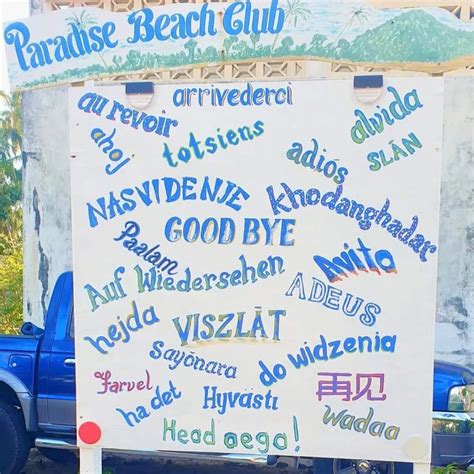 Paradise Beach Club
arrivederci
au revoir
alvida
ahoj
totsiens
adiós
SLÁN
NASVIDENJE
khodanghadar
GOOD BYE
Paalam
Avito
Auf Wiedersehen
ADEUS
hejda
VISZLÁT
Sayònara
do widzenia
farvel
ha det
Hyvästi
再见
wadaa
Head aega!